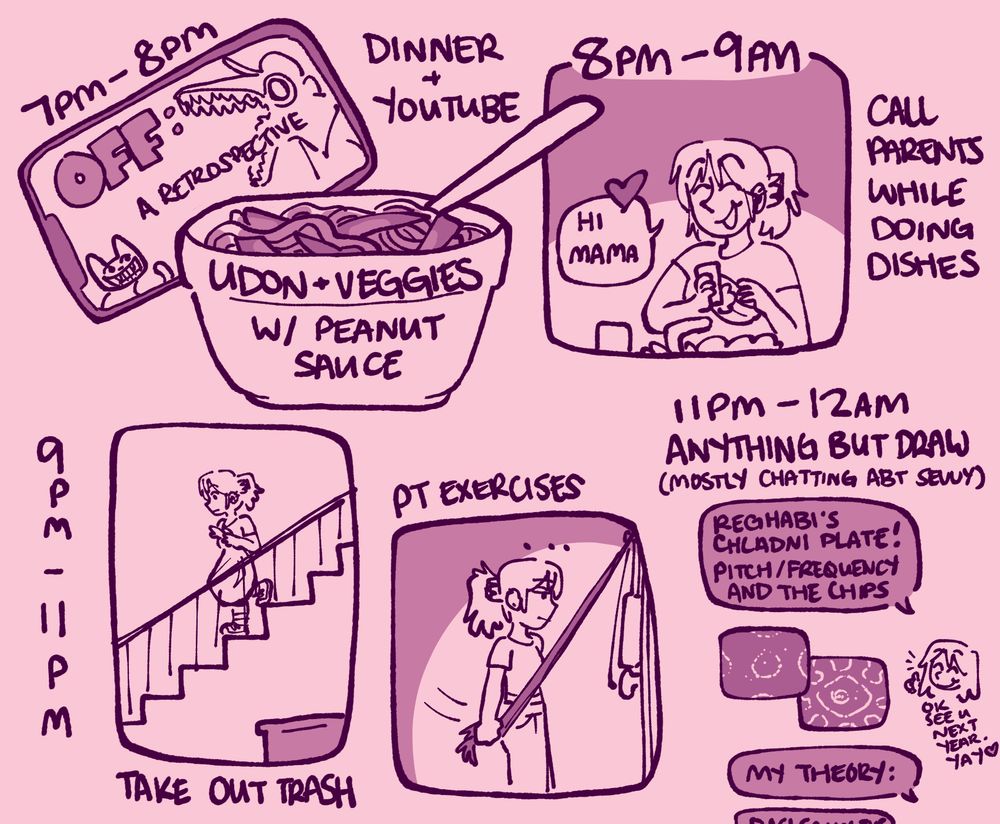 7PM - 8PM
OFF:
A RETROSPECTIVE
DINNER
+
YOUTUBE
UDON + VEGGIES
W/ PEANUT
SAUCE
8PM - 9AM
HI
MAMA
CALL
PARENTS
WHILE
DOING
DISHES
9PM - 11PM
TAKE OUT TRASH
PT EXERCISES
...
11PM - 12AM
ANYTHING BUT DRAW
(MOSTLY CHATTING ABT SEVVY)
REGHABI'S
CHLADNI PLATE!
PITCH/FREQUENCY
AND THE CHIPS
OK
SEE U
NEXT
YEAR.
YAY
MY THEORY: